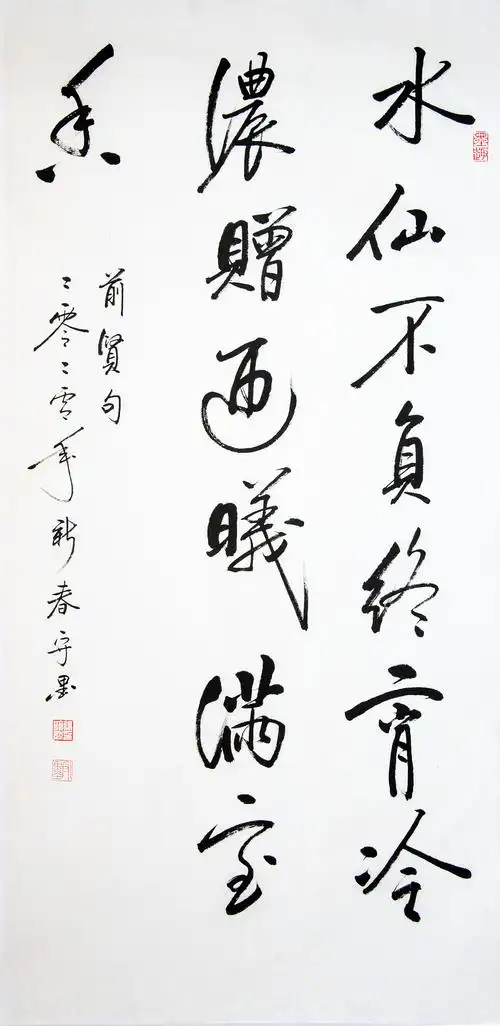 水仙不負終宵冷
濃贈迺曦滿室
香
前賢句
二零二零年新春守墨